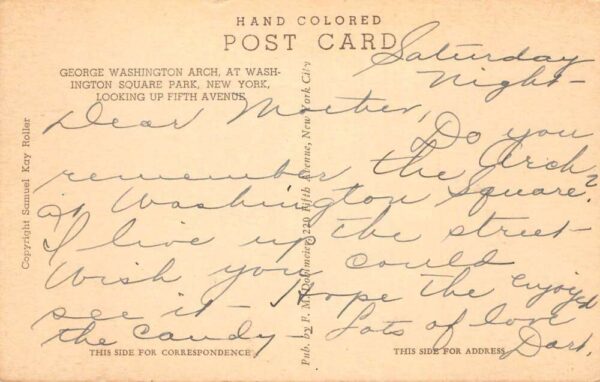 HAND COLORED
POST CARD
GEORGE WASHINGTON ARCH, AT WASH-
INGTON SQUARE PARK, NEW YORK,
LOOKING UP FIFTH AVENUE
Copyright Samuel Kay Roller
Pub. by F. M. 220 Fifth Avenue, New York City
Saturday
Night-
Dear Mother,
Do you
remember the Arch
at Washington Square?
I live up the street
Wish you could
see it - Hope the enjoyed
the candy - Lots of love
THIS SIDE FOR CORRESPONDENCE
THIS SIDE FOR ADDRESS